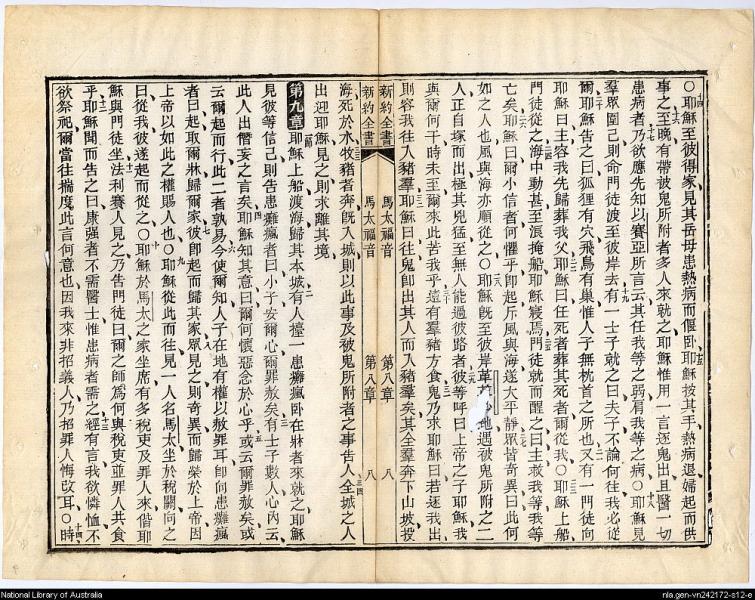 〇耶穌至彼得家見其岳母患熱病而偃卧耶穌按其手熱病退婦起而供
事之至晚有帶被鬼所附者多人來就之耶穌惟用一言逐鬼出且醫一切
患病者乃欲應先知以賽亞所言云其任我等之弱肩我等之病〇耶穌見
羣眾圍己則命門徒渡至彼岸去有一士子就之曰夫子不論何往我必從
爾耶穌告之曰狐狸有穴飛鳥有巢惟人子無枕首之所也又有一門徒向
耶穌曰主容我先歸葬我父耶穌曰任死者葬其死者爾從我〇耶穌上船
門徒從之海中動甚至浪掩船耶穌寢焉門徒就而醒之曰主救我等我等
亡矣耶穌曰爾小信者何懼乎卽起斥風與海遂大平靜眾皆奇異曰此何
如之人也風與海亦順從之〇耶穌旣至彼岸革地遇被鬼所附之二
人正自塚而出極其兇猛至無人能過彼路者彼等呼曰上帝之子耶穌我
與爾何干時未至爾來此苦我乎遠有羣豬方食鬼乃求耶穌曰若逐我出
則容我往入豬羣耶穌曰往鬼卽出其人而入豬羣矣其全羣奔下山坡投
新約全書 馬太福音 第八章 八
新約全書 馬太福音 第八章 八
海死於水牧豬者奔旣入城則以此事及被鬼所附者之事告人全城之人
出迎耶穌見之則求離其境
第九章 耶穌上船渡海歸其本城有人擡一患癱瘋卧在牀者來就之耶穌
見彼等信己則告患癱瘋者曰小子安爾心爾罪赦矣有士子數人心內云
此人出僭妄之言矣耶穌知其意曰爾何懷惡念於心乎或云爾罪赦矣或
云爾起而行此二者孰易今使爾知人子在地有權以赦罪耳卽向患癱瘋
者曰起取爾牀歸爾家彼卽起而歸其家眾見之則奇異而歸榮於上帝因
上帝以如此之權賜人也〇耶穌從此而往見一人名馬太坐於稅關向之
曰從我彼遂起而從之〇耶穌於馬太之家坐席有多稅吏及罪人來偕耶
穌與門徒坐法利賽人見之乃告門徒曰爾之師爲何與稅吏並罪人共食
乎耶穌聞而告之曰康强者不需醫士惟患病者需之經有言我欲憐恤不
欲祭祀爾當往揣度此言何意也因我來非招義人乃招罪人悔改耳〇時
National Library of Australia
nla.gen-vn242172-s12-e